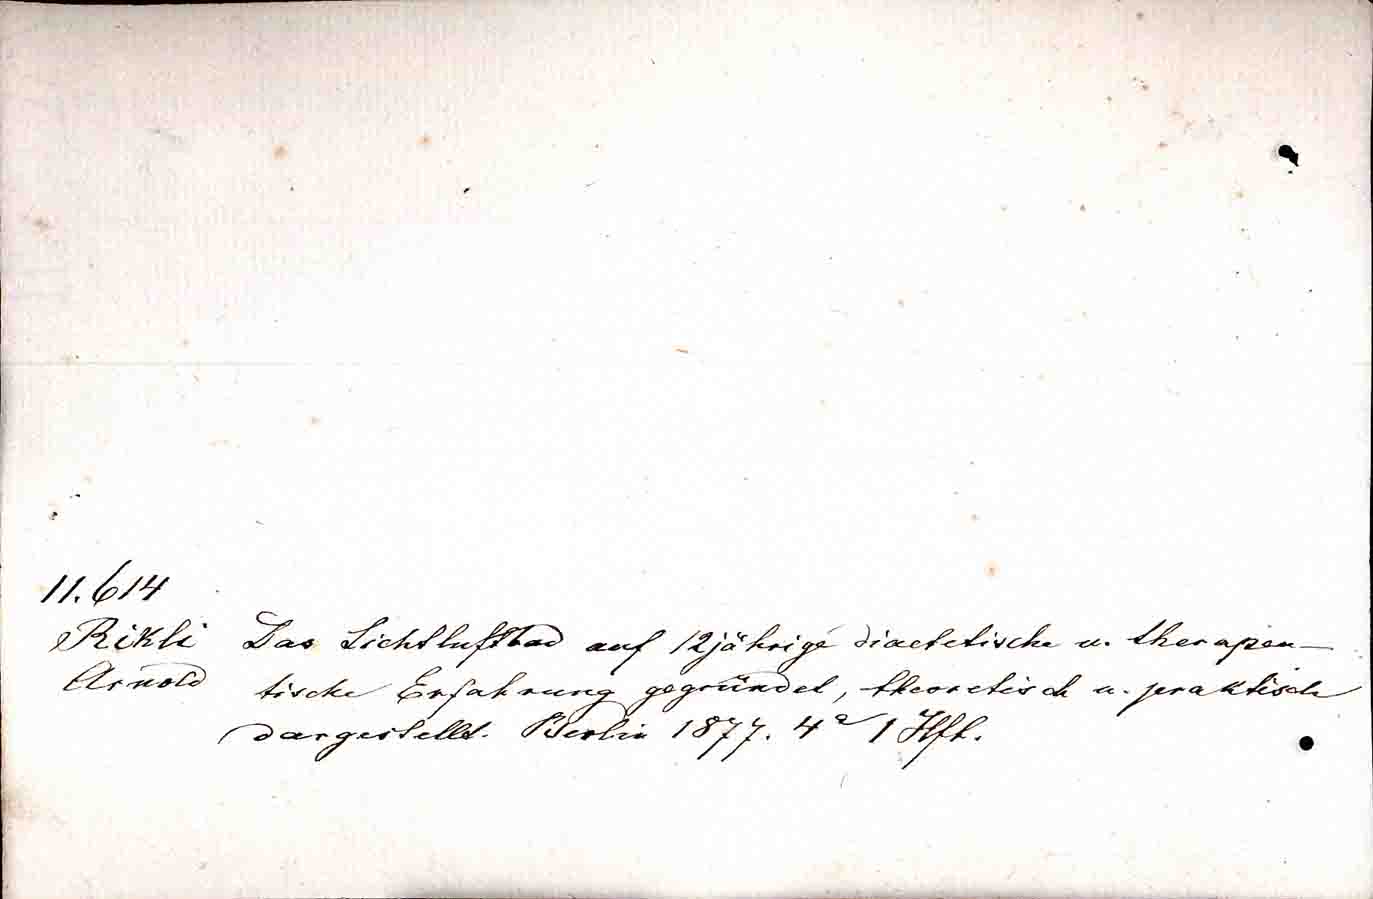 11.614
Rikli Das Lichtluftbad auf 12jährige diaetetische u. therapeu-
Arnold tische Erfahrung gegründet, theoretisch u. praktisch
dargestellt. Berlin 1877. 4º 1 Hft.